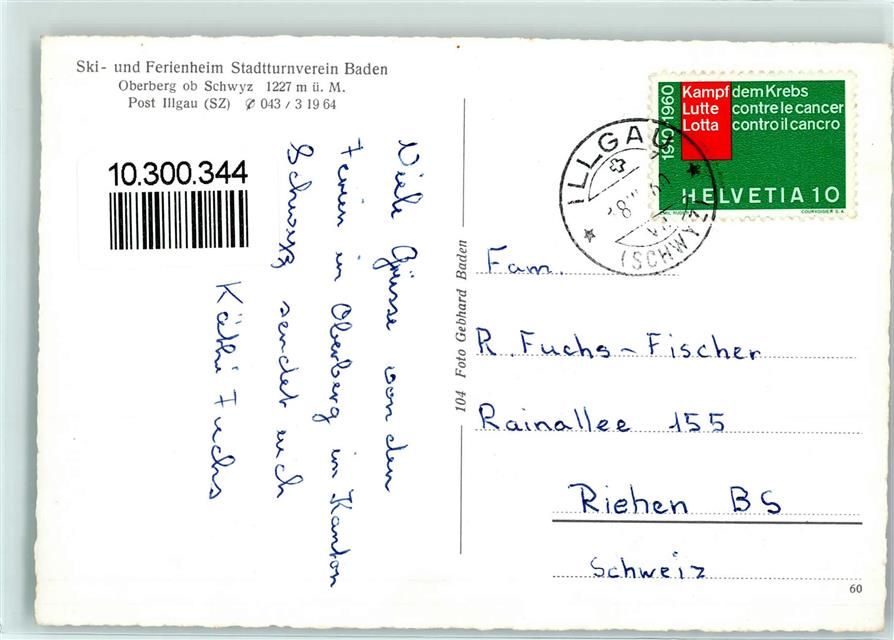 Ski- und Ferienheim Stadtturnverein Baden
Oberberg ob Schwyz 1227 m ü. M.
Post Illgau (SZ) ✆ 043 / 3 19 64
10.300.344
Viele Grüsse von den
Ferien in Oberberg im Kanton
Schwyz sendet euch
Käthi Fuchs
104 Foto Gebhard Baden
1910/1960
Kampf dem Krebs
Lutte contre le cancer
Lotta contro il cancro
HELVETIA 10
COURVOISIER S.A.
ILLGAU
(SCHWYZ)
Fam.
R. Fuchs-Fischer
Rainallee 155
Riehen BS
Schweiz
60